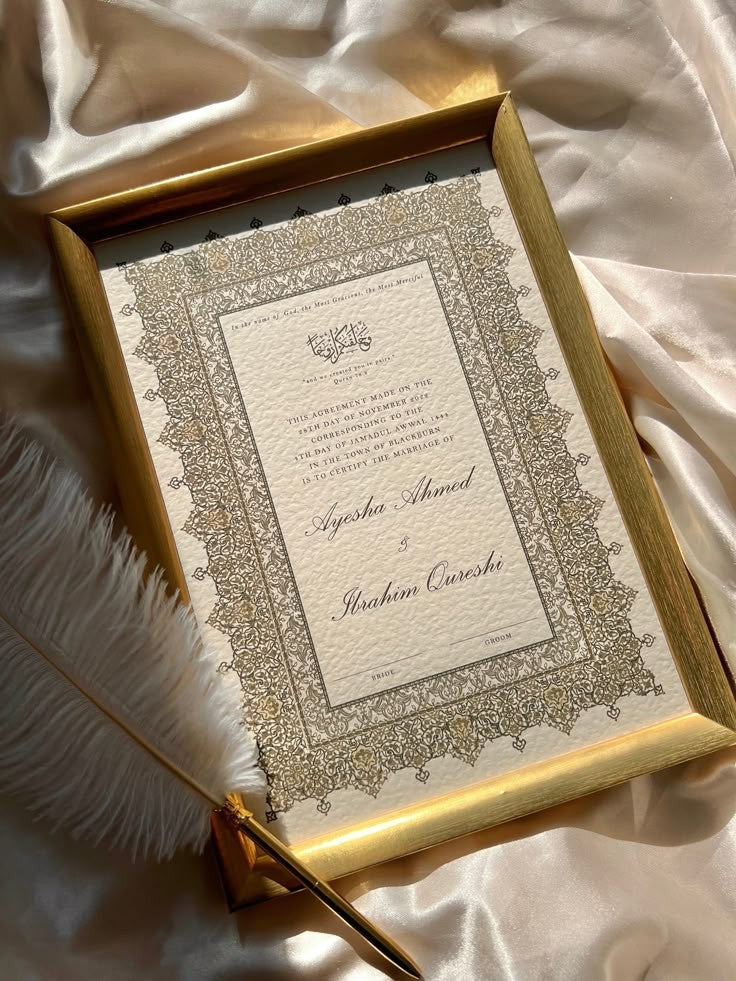 In the name of God, the Most Gracious, the Most Merciful
وخلقنكم أزوجا
"and we created you in pairs."
Quran 78:8
THIS AGREEMENT MADE ON THE
28TH DAY OF NOVEMBER 2022
CORRESPONDING TO THE
4TH DAY OF JAMADUL AWWAL 1444
IN THE TOWN OF BLACKBURN
IS TO CERTIFY THE MARRIAGE OF
Ayesha Ahmed
&
Ibrahim Qureshi
BRIDE
GROOM